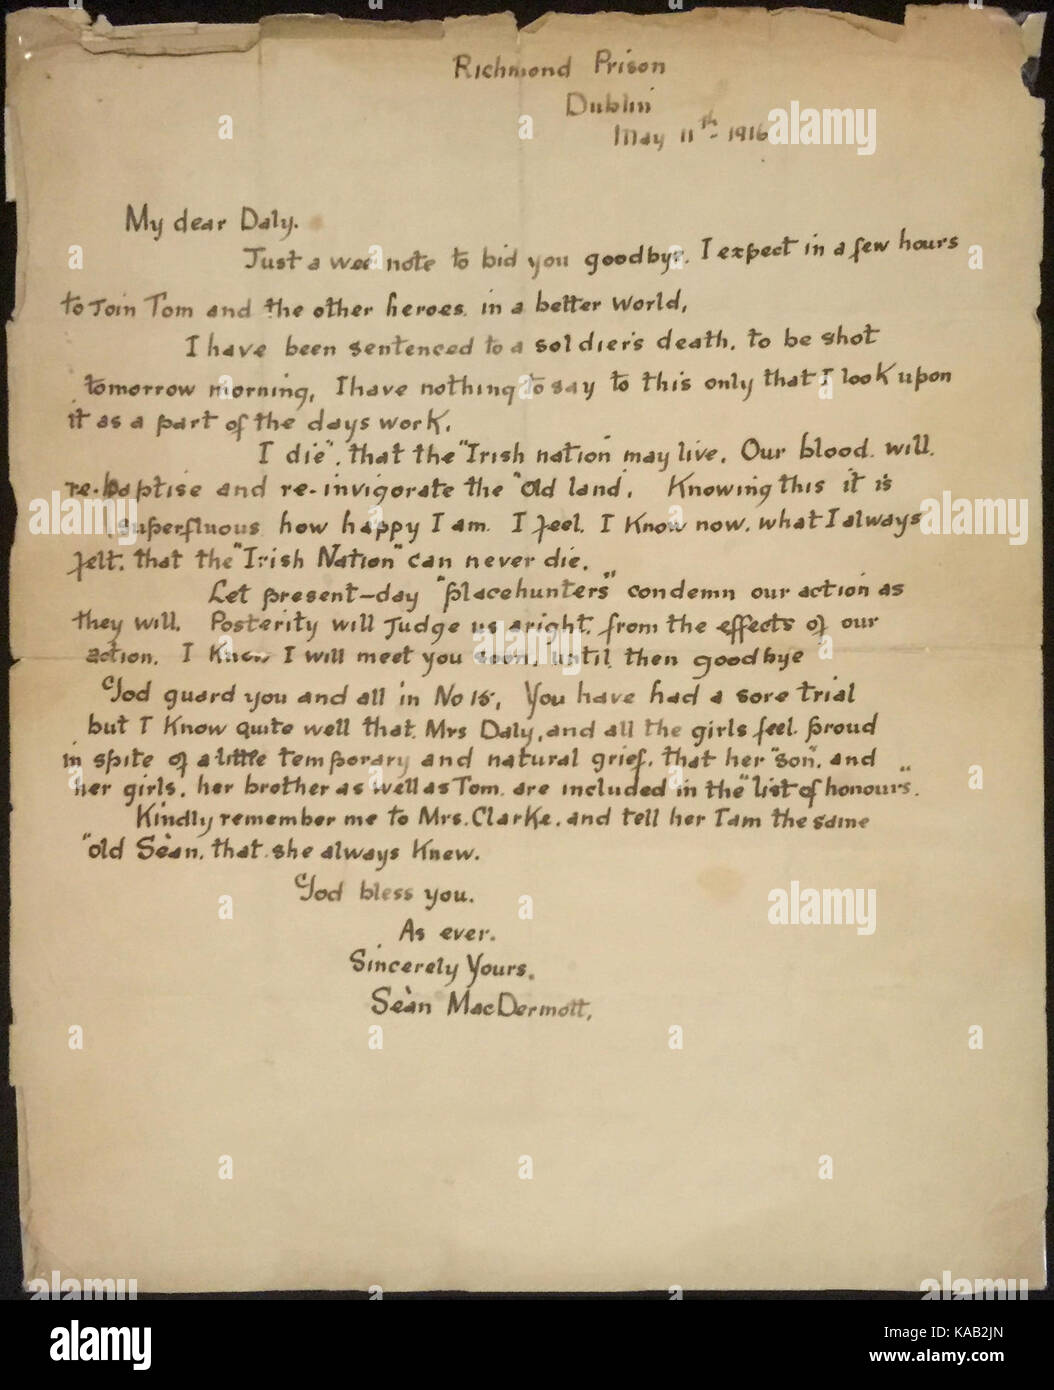 Richmond Prison
Dublin
May 11th 1916
My dear Daly.
Just a wee note to bid you goodbye. I expect in a few hours
to Join Tom and the other heroes. in a better world,
I have been sentenced to a soldier's death, to be shot
tomorrow morning, I have nothing to say to this only that I look upon
it as a part of the days work.
I die", that the "Irish nation may live. Our blood. will.
re-baptise and re-invigorate the "Old land. Knowing this it is
superfluous how happy I am. I feel. I know now. what I always
felt. that the "Irish Nation" can never die.
Let present-day "placehunters" condemn our action as
they will. Posterity will Judge us aright. from the effects of our
action. I know I will meet you soon, until then goodbye
God guard you and all in No 15, You have had a sore trial
but I know quite well that Mrs Daly, and all the girls feel proud
in spite of a little temporary and natural grief. that her "son", and
her girls, her brother as well as Tom. are included in the "list of honours".
Kindly remember me to Mrs. Clarke, and tell her I am the same
"old Seàn. that she always knew.
God bless you.
As ever.
Sincerely Yours.
Seàn MacDermott.
alamy
Image ID: KAB2JN
www.alamy.com